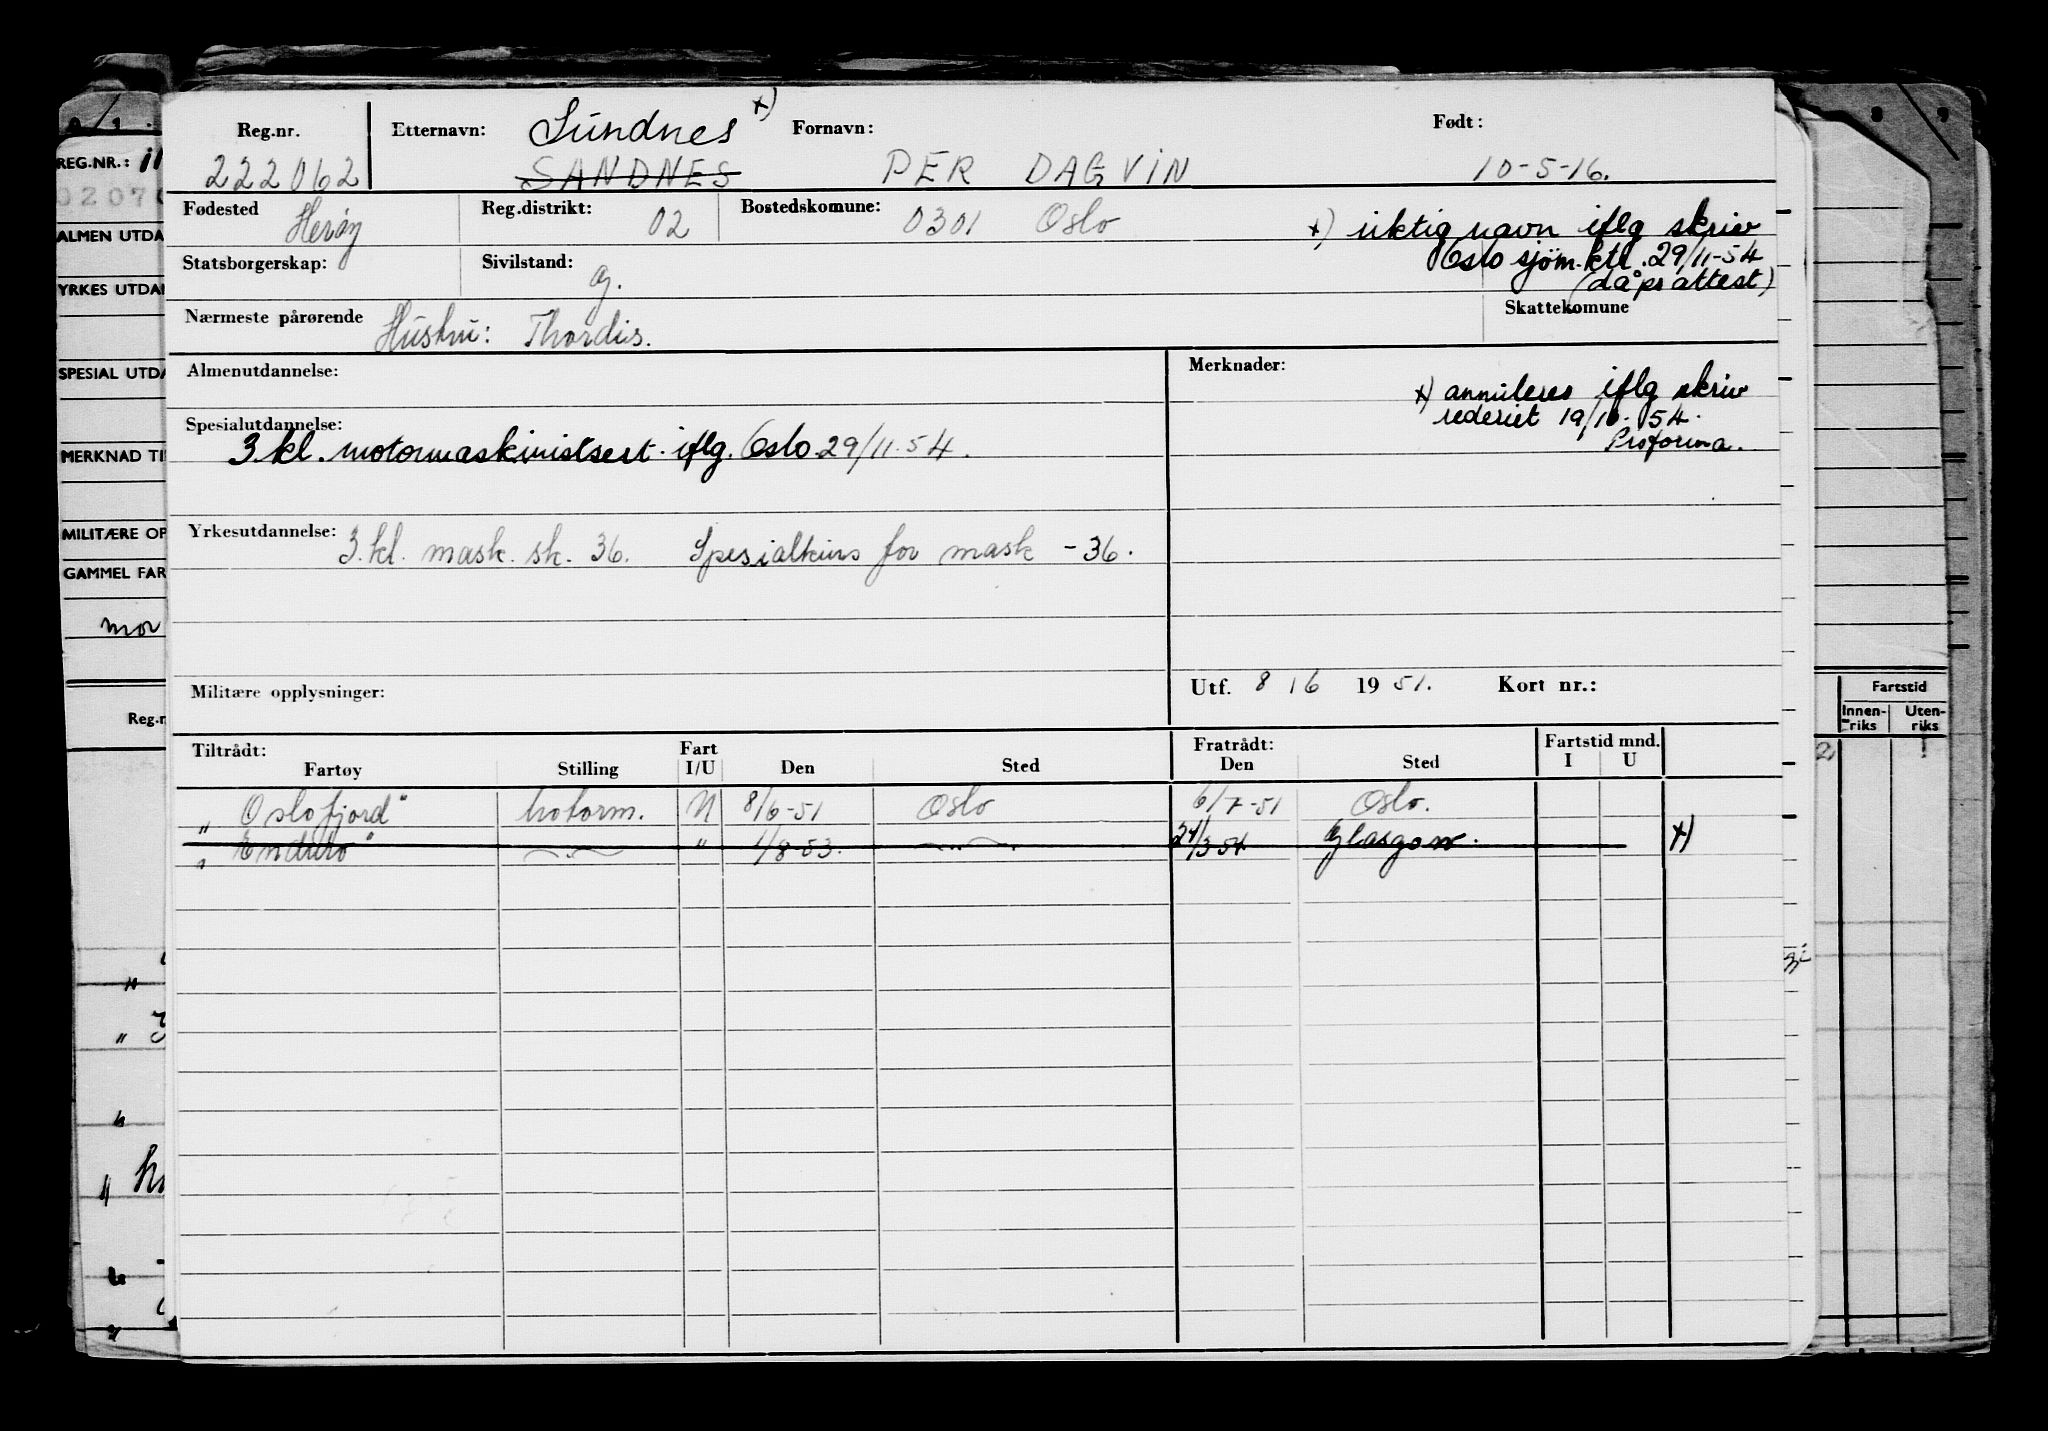 Reg.nr. Etternavn: Sundnes x) Fornavn: Født:
222062 SANDNES PER DAGVIN 10-5-16.
Fødested Herøy Reg.distrikt: 02 Bostedskomune: 0301 Oslo x) riktig navn iflg skriv
Oslo sjøm.ktr. 29/11-54
Statsborgerskap: Sivilstand: G. (dåpsattest)
Nærmeste pårørende Hustru: Thordis. Skattekomune
Almenutdannelse:
Spesialutdannelse:
3.kl. motormaskinistsert. iflg. Oslo 29/11.54.
Yrkesutdannelse: 3.kl. mask. sk. 36. Spesialkurs for mask -36.
Militære opplysninger:
Merknader:
x) annuleres iflg skriv
rederiet 19/10-54.
Proforma.
Utf. 8/6 1951. Kort nr.:
Tiltrådt: Fart Fratrådt: Fartstid mnd.
Fartøy Stilling I/U Den Sted Den Sted I U
"Oslofjord" motorm. U 8/6-51 Oslo 6/7-51 Oslo.
"Enduro" " 1/8-53. 24/3 54 Glasgow. x)
REG.NR.:
0207
ALMEN UTDA
YRKES UTDA
SPESIAL UTDA
MERKNAD TI
MILITÆRE OP
GAMMEL FAR
mor
Reg.n
Fartstid
Innen-riks Uten-riks